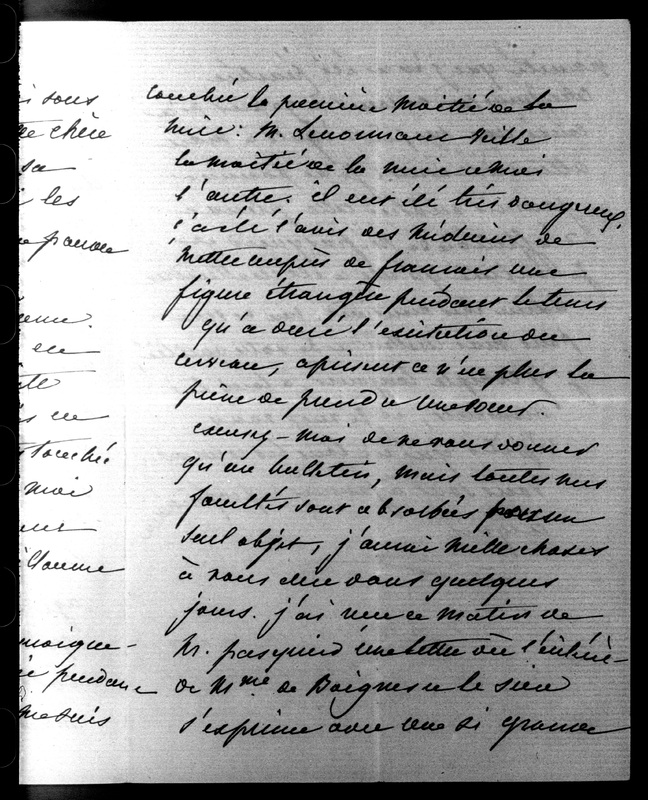 i sous
chère
sa
les
parole
en
en
touché
moi
donne
moigne-
pendant
me suis
couchée la première moitié de la
nuit: M. Lenormant veille
la moitié de la nuit et moi
l'autre. il eut été très dangereux
ç'a été l'avis des médecins de
mettre auprès de francois une
figure étrangère pendant le tems
qu'a duré l'excitation du
cerveau, à présent ce n'est plus la
peine de prendre une sœur.
excusez-moi de ne vous donner
qu'un bulletin, mais toutes mes
facultés sont absorbées par un
seul objet, j'aurai mille choses
à vous dire dans quelques
jours. j'ai reçu ce matin de
M. pasquier une lettre où l'intérêt
de Mme de Boignes et le sien
s'exprime avec une si grande